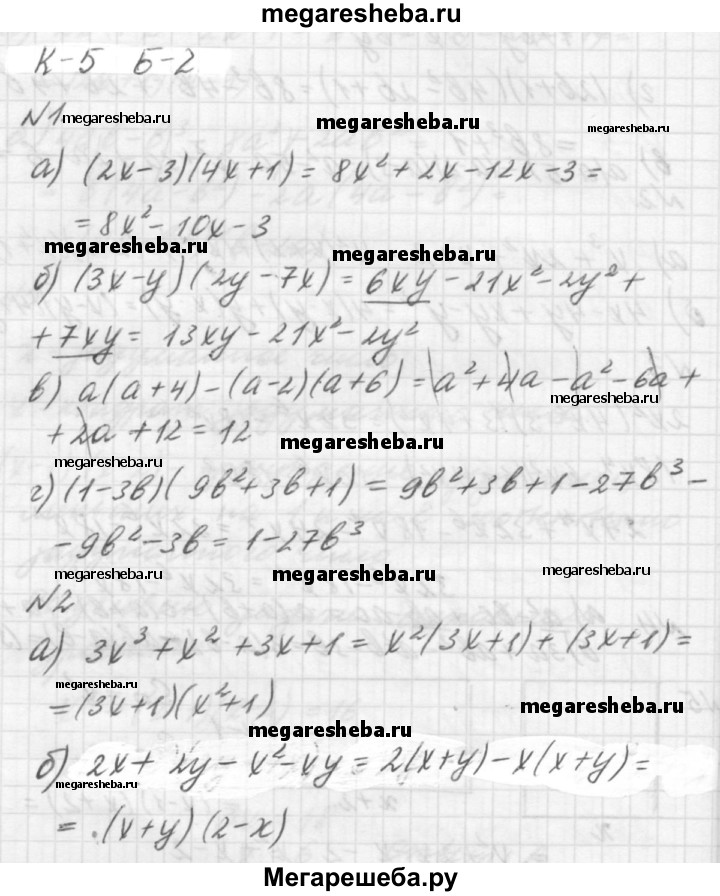 megaresheba.ru
К-5 Б-2
№1 megaresheba.ru megaresheba.ru megaresheba.ru
а) (2x-3)(4x+1) = 8x²+2x-12x-3=
= 8x²-10x-3
megaresheba.ru megaresheba.ru
б) (3x-y)(2y-7x) = 6xy-21x²-2y²+
+7xy = 13xy-21x²-2y²
в) a(a+4)-(a-2)(a+6) = a²+4a-a²-6a+
megaresheba.ru
+2a+12 = 12
megaresheba.ru megaresheba.ru
г) (1-3b)(9b²+3b+1) = 9b²+3b+1-27b³-
-9b²-3b = 1-27b³
megaresheba.ru megaresheba.ru megaresheba.ru
№2
а) 3x³+x²+3x+1 = x²(3x+1)+(3x+1)=
megaresheba.ru
=(3x+1)(x²+1)
megaresheba.ru megaresheba.ru
б) 2x+2y-x²-xy = 2(x+y)-x(x+y)=
megaresheba.ru
= (x+y)(2-x)
Мегарешеба.ру